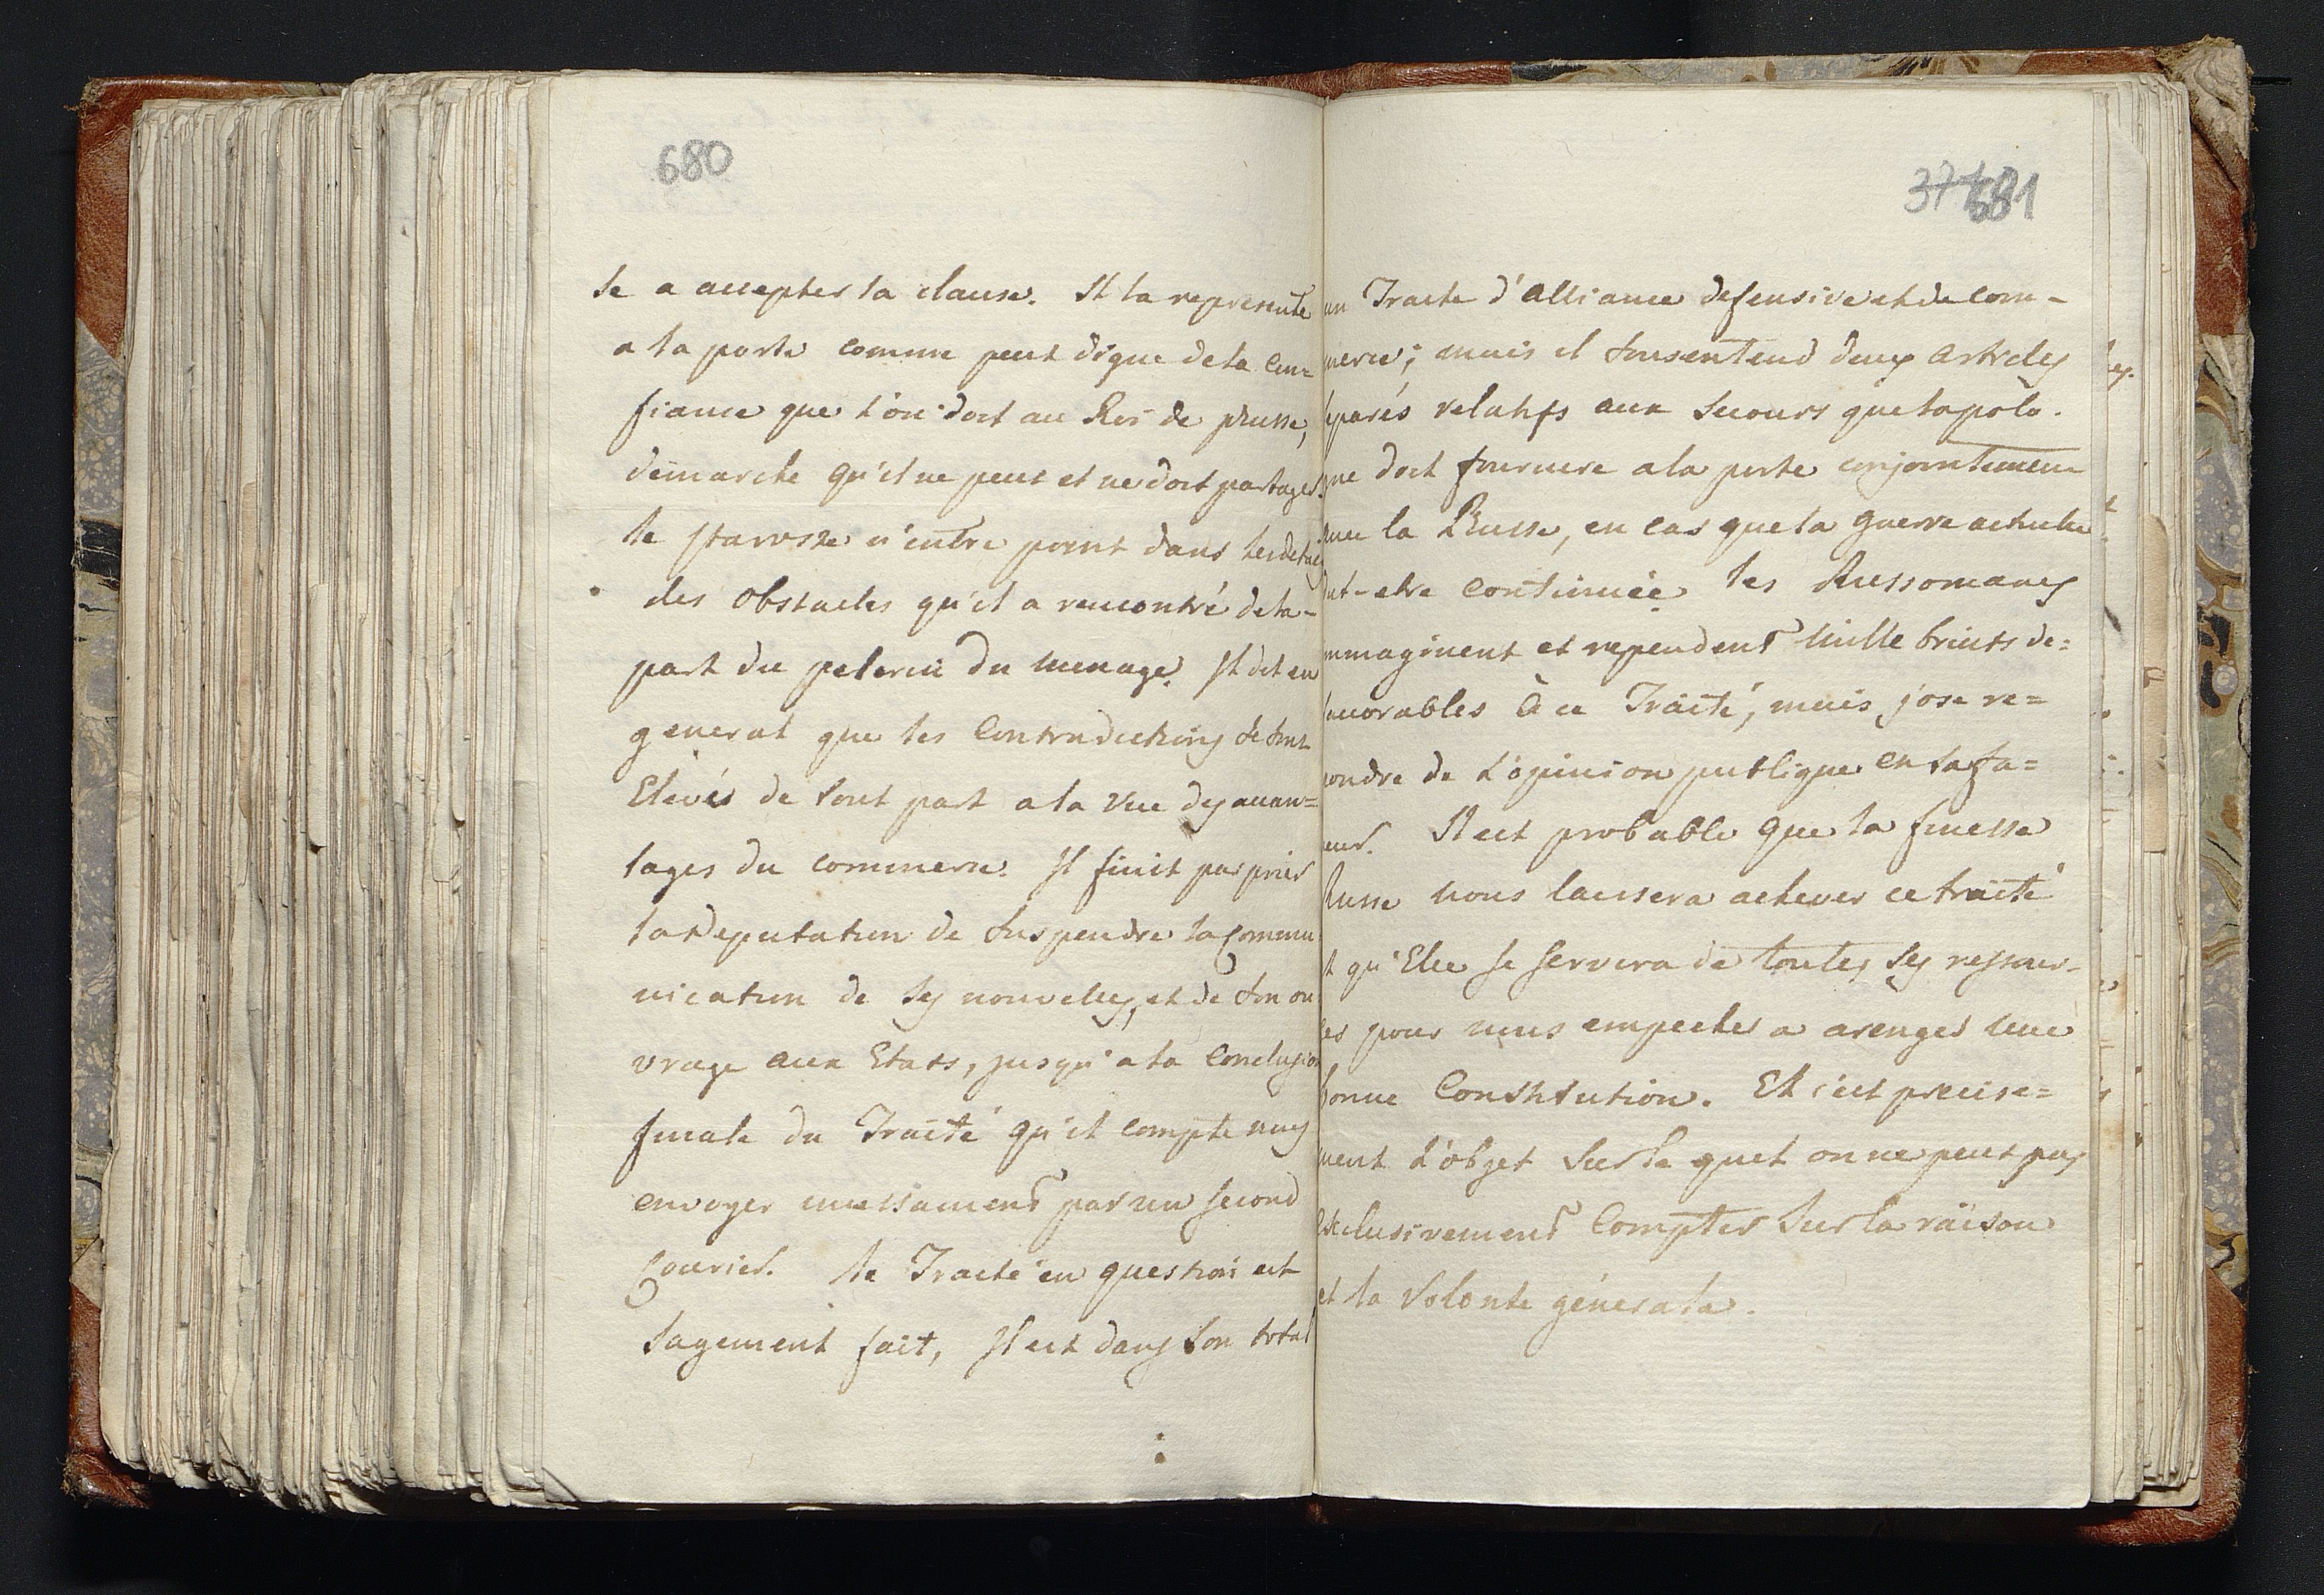 680
le a accepter la clause. Il la represente
a la porte comme peut digne de la con=
fiance que l'on doit au Roi de prusse,
demarche qu'il ne peut et ne doit partager.
le staroste n'entre point dans les details
des obstacles qu'il a rencontré de la-
part du pelerin du menage. Il dit en
general que les Contradictions se sont
Elevés de tout part a la vue des avan=
tages du commerce. Il finit par prier
la Deputation de suspendre la Commu
nication de ses nouvelles, et de son ou
vrage aux Etats, jusqu'a la Conclusion
finale du Traité qu'il compte nous
envoyer incessament par un second
Courier. le Traité en question est
sagement fait, Il est dans son total
37 681
un Traité d'alliance defensive et de com-
merce; mais il sousentend deux articles
separés relatifs aux secours que la polo-
gne doit fournire a la porte conjointement
avec la Prusse, en cas que la guerre actuelle
dut-etre continuée. les Russomanes
immaginent et rependent mille bruits de=
favorables à ce Traité, mais j'ose re=
pondre de l'opinion publique en sa fa=
veur. Il est probable que la finesse
Russe nous laissera achever ce traité
et qu'Elle se servira de toutes ses ressour-
ces pour nous empecher a arenger une
bonne Constitution. Et c'est precise=
ment l'objet sur le quel on ne peut pas
exclusivement Compter sur la raison
et la Volonte generale.